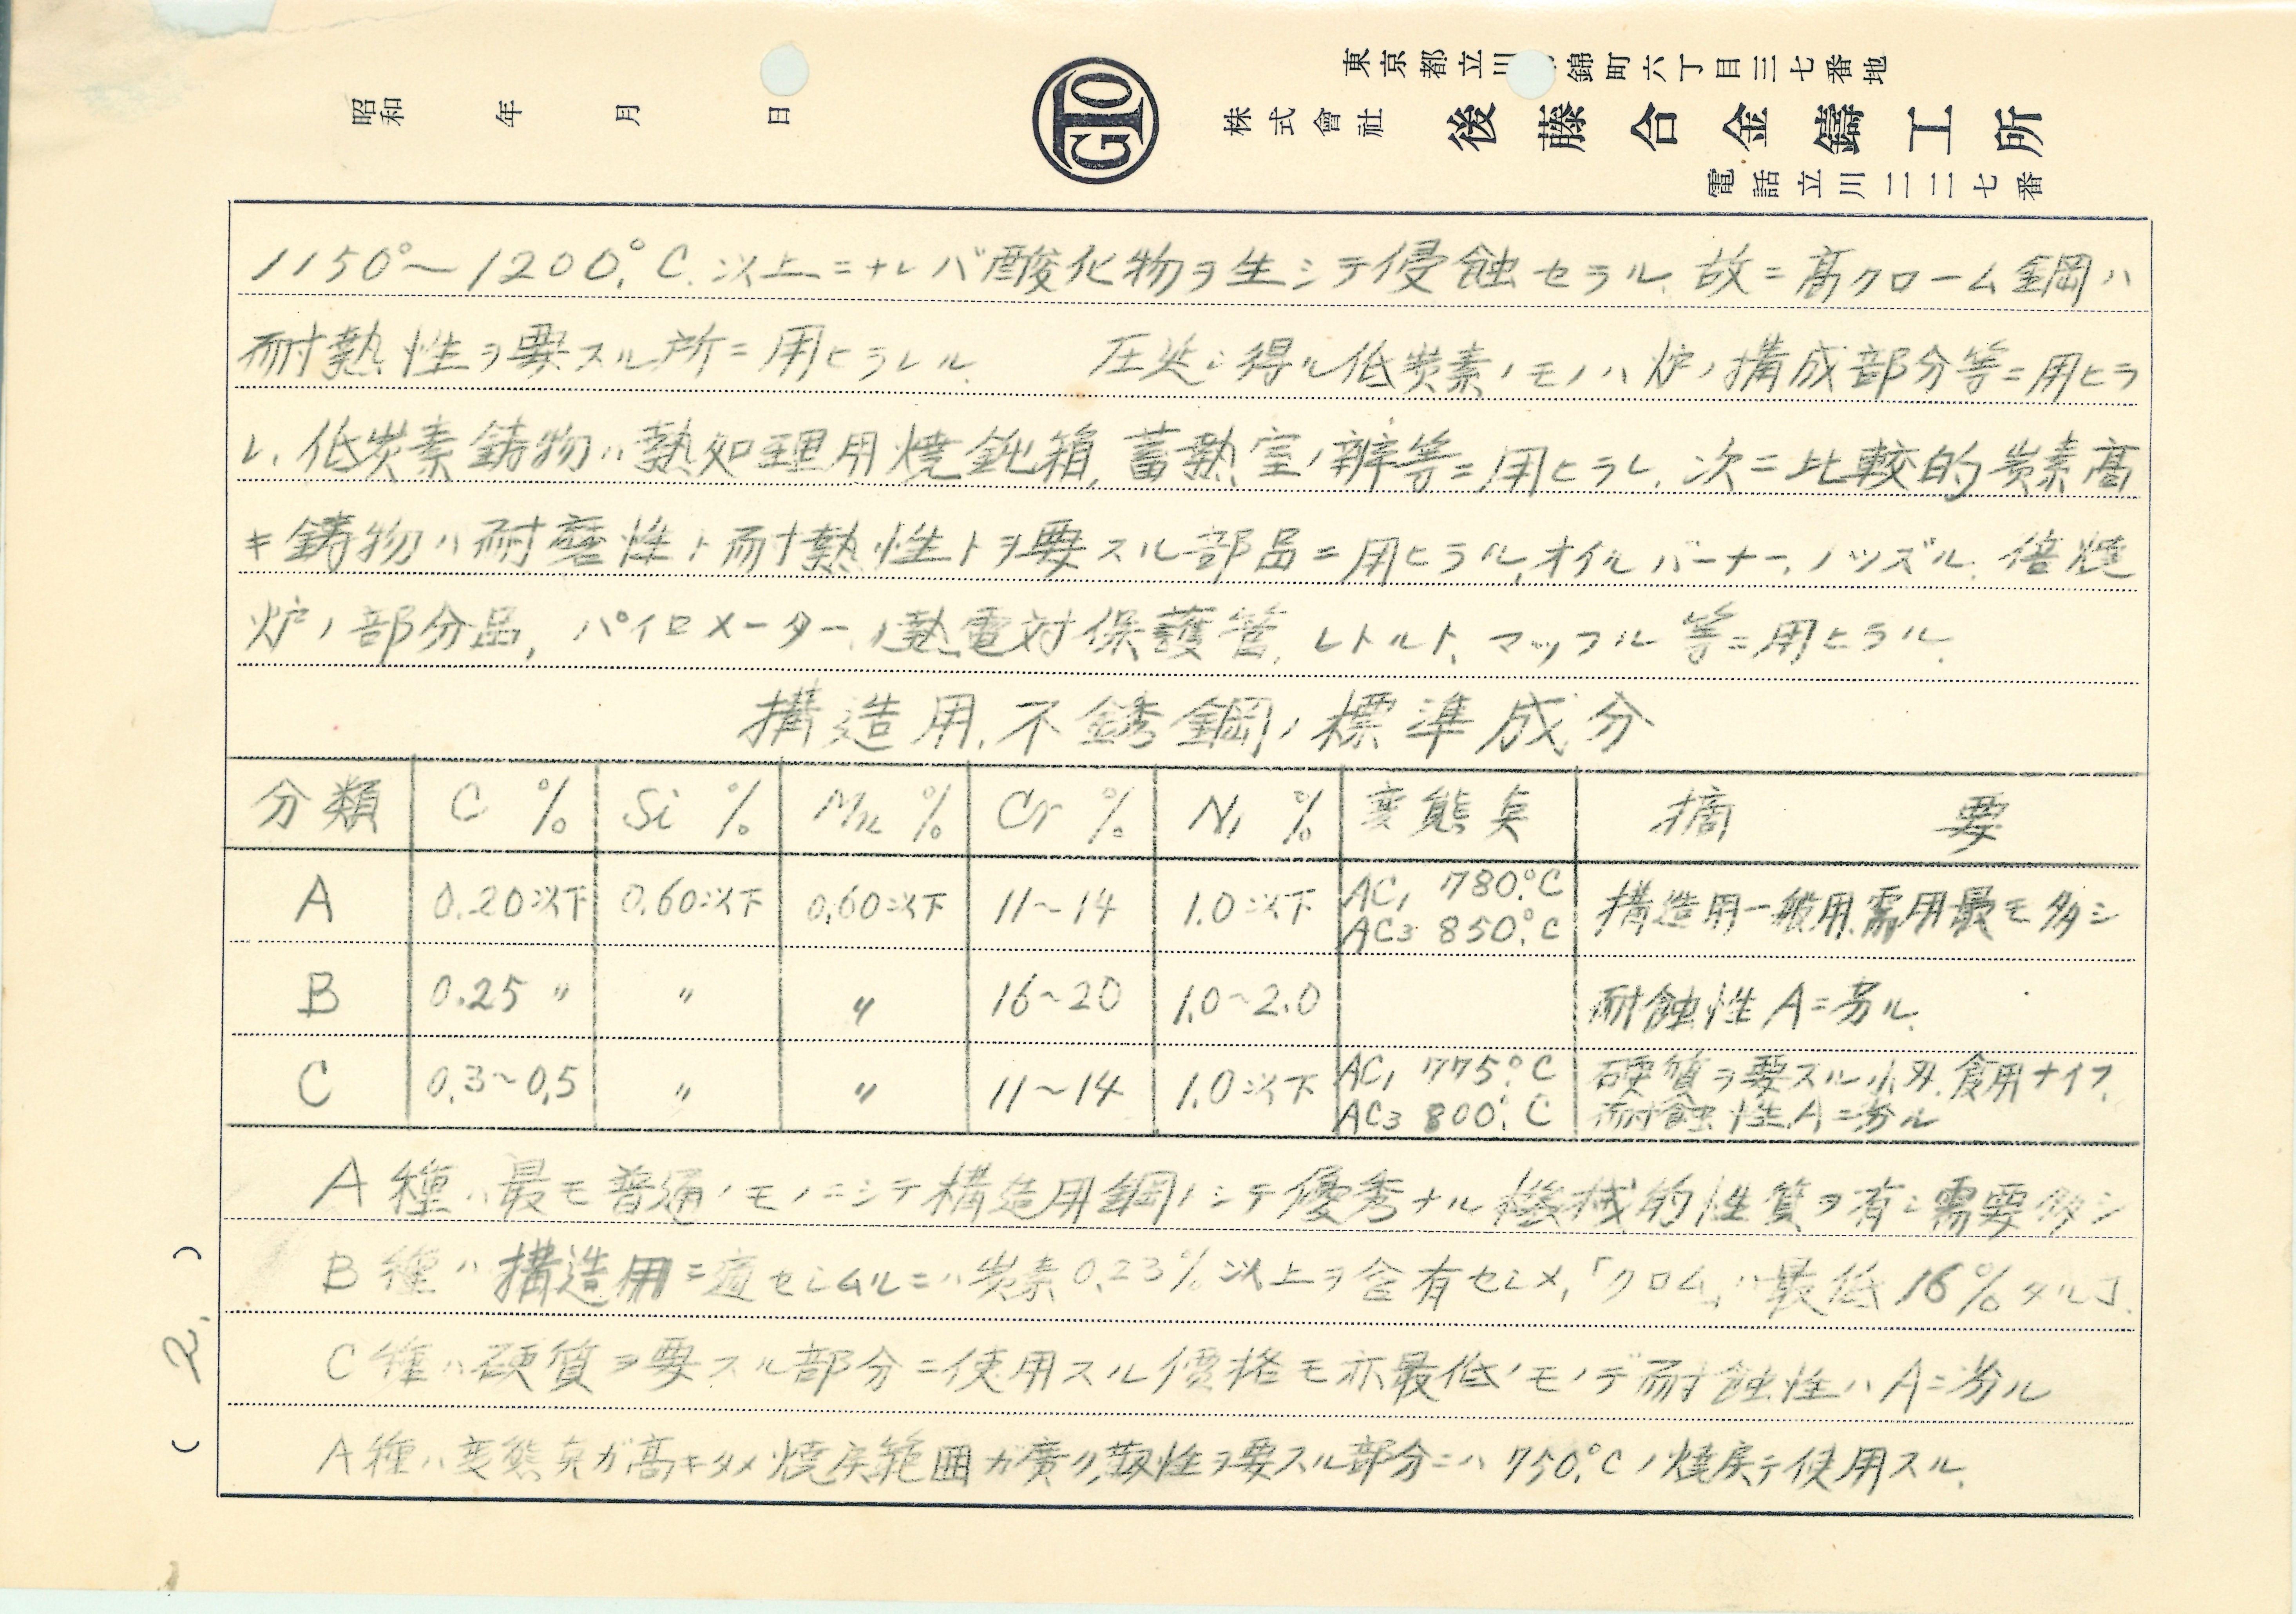 東京都立川 錦町六丁目三七番地
昭和 年 月 日
GTO
株式會社 後藤合金鑄工所
電話立川二二七番
1150°~1200°C.以上ニナレバ酸化物ヲ生シテ侵蝕セラル、故ニ高クローム鋼ハ
耐熱性ヲ要スル所ニ用ヒラレル 圧延シ得ル低炭素ノモノハ炉ノ構成部分等ニ用ヒラ
レ、低炭素鋳物ハ熱処理用焼鈍箱,蓄熱室ノ辨等ニ用ヒラレ、次ニ比較的炭素高
キ鋳物ハ耐磨性ト耐熱性トヲ要スル部品ニ用ヒラル,オイルバーナー、ノッズル、焼
炉ノ部分品,パイロメーターノ熱電対保護管,レトルト、マッフル等ニ用ヒラル、
構造用、不銹鋼ノ標準成分
分類 C % Si % Mn % Cr % Ni % 変態点 摘要
A 0.20以下 0.60以下 0.60以下 11~14 1.0以下 AC1 780°C AC3 850°C 構造用一般用、需用最モ多シ
B 0.25 〃 〃 〃 16~20 1.0~2.0 耐蝕性Aニ劣ル、
C 0.3~0.5 〃 〃 11~14 1.0以下 AC1 775°C AC3 800°C 硬質ヲ要スル小刃、食用ナイフ、耐蝕性Aニ劣ル
A種ハ最モ普通ノモノニシテ構造用鋼ノシテ優秀ナル機械的性質ヲ有シ需要多シ
B種ハ構造用ニ適セシムルニハ炭素0.23%以上ヲ含有セシメ,「クロム」ハ最低16%タルコ
C種ハ硬質ヲ要スル部分ニ使用スル價格モ亦最低ノモノデ耐蝕性ハAニ劣ル
A種ハ変態点ガ高キタメ焼戻範囲ガ廣ク,靱性ヲ要スル部分ニハ750°Cノ焼戻テ使用スル、
(2.)